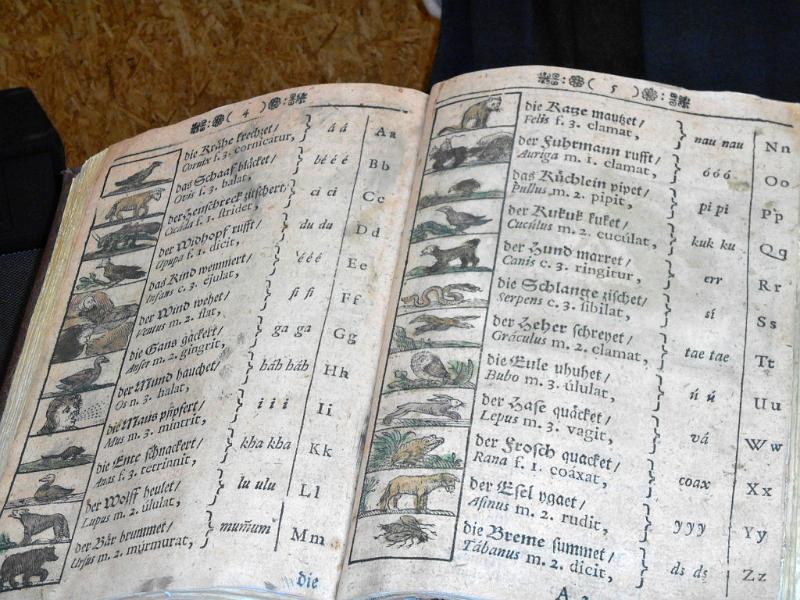 ( 4 )
die Krähe krechzet/
Cornix f. 3. cornicatur,
á á
Aa
das Schaaf bläcket/
Ovis f. 3. balat,
bé é é
Bb
der Heuschreck zitschert/
Cicada f. 1. stridet,
ci ci
Cc
der Widhopf rufft/
Upupa f. 1. dicit,
du du
Dd
das Kind wemmert/
Infans c. 3. ejulat,
é é é
Ee
der Wind wehet/
Ventus m. 2. flat,
fi fi
Ff
die Gans gackert/
Anser m. 2. gingrit,
ga ga
Gg
der Mund hauchet/
Os n. 3. halat,
háh háh
Hh
die Maus pfipfert/
Mus m. 3. mintrit,
i i i
Ii
die Ente schnackert/
Anas f. 3. tetrinnit,
kha kha
Kk
der Wolff heulet/
Lupus m. 2. úlulat,
lu ulu
Ll
der Bär brummet/
Ursus m. 2. múrmurat,
mum̃um
Mm
die
( 5 )
die Katze mautzet/
Felis f. 3. clamat,
nau nau
Nn
der Fuhrmann rufft/
Auriga m. 1. clamat,
ó ó ó
Oo
das Küchlein pipet/
Pullus m. 2. pipit,
pi pi
Pp
der Kukuk kuket/
Cucúlus m. 2. cucúlat,
kuk ku
Qq
der Hund marret/
Canis c. 3. ringitur,
err
Rr
die Schlange zischet/
Serpens c. 3. sibilat,
si
Ss
der Heher schreyet/
Gráculus m. 2. clamat,
tae tae
Tt
die Eule uhuhet/
Bubo m. 3. úlulat,
ú ú
Uu
der Hase quäcket/
Lepus m. 3. vagit,
vá
Ww
der Frosch quacket/
Rana f. 1. coáxat,
coax
Xx
der Esel ygaet/
Asinus m. 2. rudit,
y y y
Yy
die Breme summet/
Tábanus m. 2. dicit,
ds ds
Zz
A